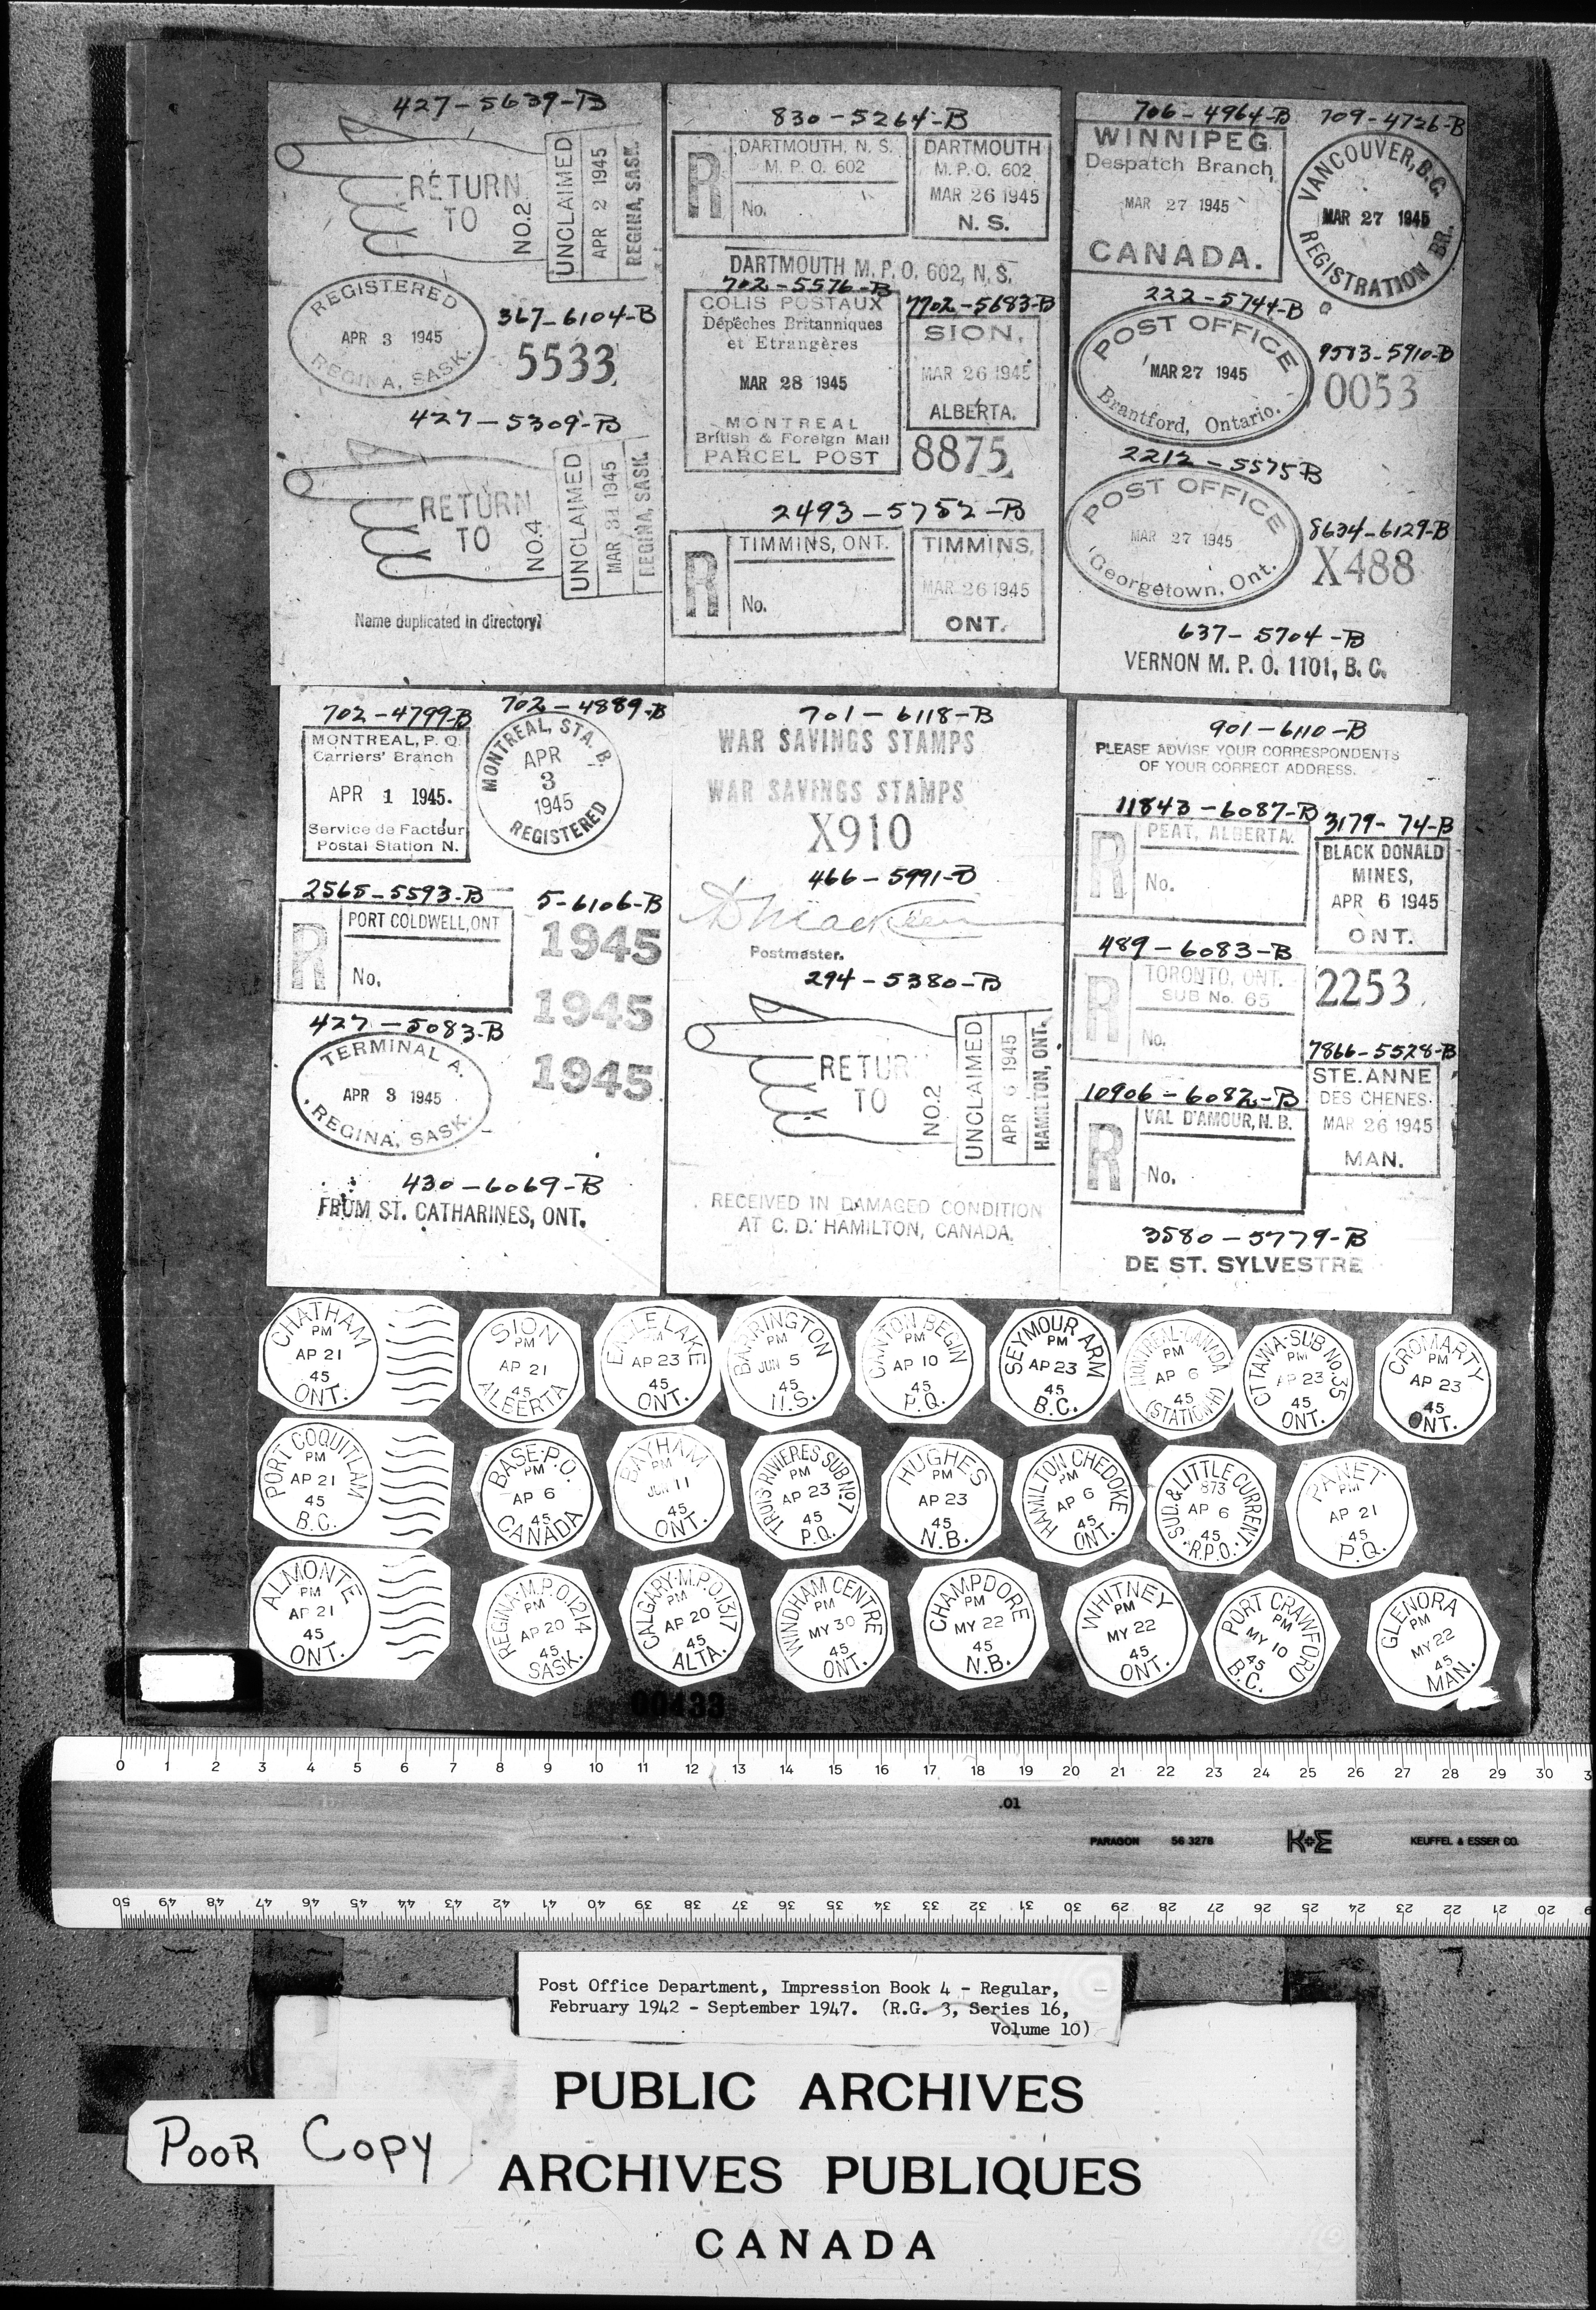 427-5639-B
RETURN
TO
NO.2
UNCLAIMED
APR 2 1945
REGINA, SASK.
REGISTERED
APR 3 1945
REGINA, SASK.
367-6104-B
5533
427-5309-B
RETURN
TO
NO.4
UNCLAIMED
MAR 31 1945
REGINA, SASK.
Name duplicated in directory
830-5264-B
R
DARTMOUTH, N. S.
M. P. O. 602
No.
DARTMOUTH
M. P. O. 602
MAR 26 1945
N. S.
DARTMOUTH M. P. O. 602, N, S,
702-5576-B
COLIS POSTAUX
Dépêches Britanniques
et Etrangères
MAR 28 1945
MONTREAL
British & Foreign Mail
PARCEL POST
7702-5683-B
SION,
MAR 26 1945
ALBERTA.
8875
2493-5752-B
R
TIMMINS, ONT.
No.
TIMMINS,
MAR 26 1945
ONT.
706-4964-B
WINNIPEG
Despatch Branch
MAR 27 1945
CANADA.
709-4726-B
VANCOUVER, B.C.
MAR 27 1945
REGISTRATION BR.
222-5744-B
POST OFFICE
MAR 27 1945
Brantford, Ontario.
9583-5910-B
0053
2212-5575B
POST OFFICE
MAR 27 1945
Georgetown, Ont.
8634-6129-B
X488
637-5704-B
VERNON M. P. O. 1101, B. C.
702-4799-B
MONTREAL, P. Q.
Carriers' Branch
APR 1 1945.
Service de Facteur
Postal Station N.
702-4889-B
MONTREAL, STA. B.
APR
3
1945
REGISTERED
2565-5593-B
R
PORT COLDWELL, ONT
No.
5-6106-B
1945
1945
1945
427-5083-B
TERMINAL A.
APR 3 1945
REGINA, SASK.
430-6069-B
FROM ST. CATHARINES, ONT.
701-6118-B
WAR SAVINGS STAMPS
WAR SAVINGS STAMPS
X910
466-5991-B
Postmaster.
294-5380-B
RETUR
TO
NO.2
UNCLAIMED
APR 6 1945
HAMILTON, ONT.
RECEIVED IN DAMAGED CONDITION
AT C. D. HAMILTON, CANADA.
901-6110-B
PLEASE ADVISE YOUR CORRESPONDENTS
OF YOUR CORRECT ADDRESS.
11843-6087-B
R
PEAT, ALBERTA.
No.
3179-74-B
BLACK DONALD
MINES,
APR 6 1945
ONT.
489-6083-B
R
TORONTO, ONT.
SUB No. 65
No.
2253
7866-5528-B
STE. ANNE
DES CHENES.
MAR 26 1945
MAN.
10906-6082-B
R
VAL D'AMOUR, N. B.
No.
3580-5779-B
DE ST. SYLVESTRE
CHATHAM
PM
AP 21
45
ONT.
SION
PM
AP 21
45
ALBERTA
LAKE
AP 23
45
ONT.
BARRINGTON
PM
JUN 5
45
N.S.
CANTON BEGIN
PM
AP 10
45
P.Q.
SEYMOUR ARM
PM
AP 23
45
B.C.
MONTREAL-CANADA
PM
AP 6
45
(STATION H)
OTTAWA-SUB No. 35
PM
AP 23
45
ONT.
CROMARTY
PM
AP 23
45
ONT.
PORT COQUITLAM
PM
AP 21
45
B.C.
BASE P.O.
PM
AP 6
45
CANADA
BAYHAM
PM
JUN 11
45
ONT.
TROIS RIVIERES SUB No. 7
PM
AP 23
45
P.Q.
HUGHES
PM
AP 23
45
N.B.
HAMILTON CHEDOKE
PM
AP 6
45
ONT.
SUD. & LITTLE CURRENT
873
AP 6
45
R.P.O.
PANET
PM
AP 21
45
P.Q.
ALMONTE
PM
AP 21
45
ONT.
REGINA-M.P.O. 1214
PM
AP 20
45
SASK.
CALGARY-M.P.O. 1317
PM
AP 20
45
ALTA.
WINDHAM CENTRE
PM
MY 30
45
ONT.
CHAMPDORE
PM
MY 22
45
N.B.
WHITNEY
PM
MY 22
45
ONT.
PORT CRAWFORD
PM
MY 10
45
B.C.
GLENORA
PM
MY 22
45
MAN.
00433
0 1 2 3 4 5 6 7 8 9 10 11 12 13 14 15 16 17 18 19 20 21 22 23 24 25 26 27 28 29 30
.01
PARAGON 56 3278 K+E KEUFFEL & ESSER CO.
50 49 48 47 46 45 44 43 42 41 40 39 38 37 36 35 34 33 32 31 30 29 28 27 26 25 24 23 22 21 20
Post Office Department, Impression Book 4 - Regular,
February 1942 - September 1947. (R.G. 3, Series 16,
Volume 10)
PUBLIC ARCHIVES
ARCHIVES PUBLIQUES
CANADA
POOR COPY